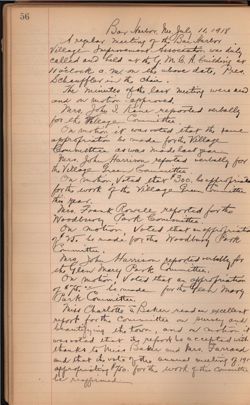 56
Bar Harbor, Me July 11, 1918
A regular meeting of the Bar Harbor
Village Improvement Association was duly
called and held at the Y. M. C. A. building at
10 o'clock a. m. on the above date, Pres.
Schauffler in the chair.
The minutes of the last meeting were read
and on motion approved.
Mrs. John S. reported verbally
for the Village Committee.
On motion it was voted that the same
appropriation be made for the Village
Committee as was made last year.
Mrs. John Harrison reported verbally for
the Village Green Committee.
On motion Voted that $300. be appropriated
for the work of the Village Green Committee
this year.
Mrs. Frank Rowell reported for the
Woodbury Park Committee.
On motion, Voted that an appropriation
of be made for the Woodbury Park
Committee.
Mrs. John Harrison reported verbally for
the Glen Mary Park Committee.
On motion Voted that an appropriation
of be made for the Glen Mary
Park Committee.
Miss Charlotte Baker read an excellent
report for the Committee on survey and
beautifying the town, and on motion it
was voted that its report be accepted with
thanks to Miss Baker and Mrs. Farrand
and that the vote of the annual meeting of
appropriating for the work of the Committee
be reaffirmed.